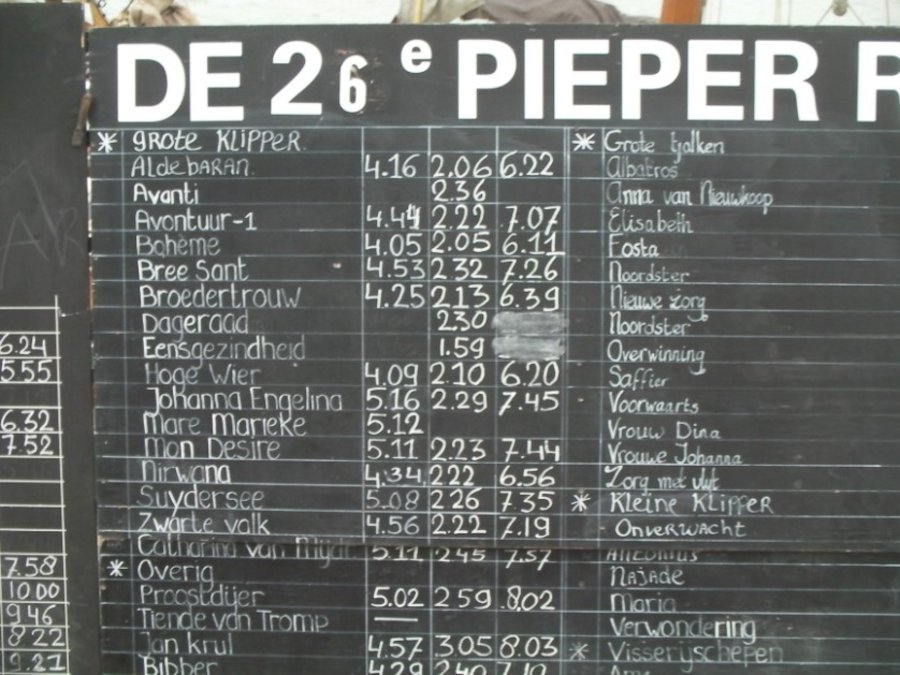 DE 26e PIEPER R
* GROTE KLIPPER
AldebARAN 4.16 2.06 6.22
Avanti 2.36
Avontuur-1 4.44 2.22 7.07
Bohème 4.05 2.05 6.11
Bree Sant 4.53 232 7.26
Broedertrouw 4.25 213 6.39
Dageraad 230
Eensgezindheid 1.59
Hoge Wier 4.09 2.10 6.20
Johanna Engelina 5.16 2.29 7.45
Mare Marieke 5.12
Mon Desire 5.11 2.23 7.44
Nirwana 4.34 222 6.56
Suydersee 5.08 226 7.35
Zwarte valk 4.56 2.22 7.19
Catharina van 5.11 245 7.57
* Overig
Proostdijer 5.02 259 8.02
Tiende van Tromp —
Jan krul 4.57 305 8.03
Bibber 4.29 2.40 7.10
* Grote tjalken
Albatros
Anna van Nieuwkoop
Elisabeth
Fosta
Noordster
Nieuwe zorg
Noordster
Overwinning
Saffier
Voorwaarts
Vrouw Dina
Vrouwe Johanna
Zorg met vlyt
* Kleine KlIPPER
ONVERWACHT
Antonius
NAJADE
Maria
Verwondering
* Visserijschepen
6.24
555
6.32
7.52
7.58
10.00
9.46
8 22
9.27